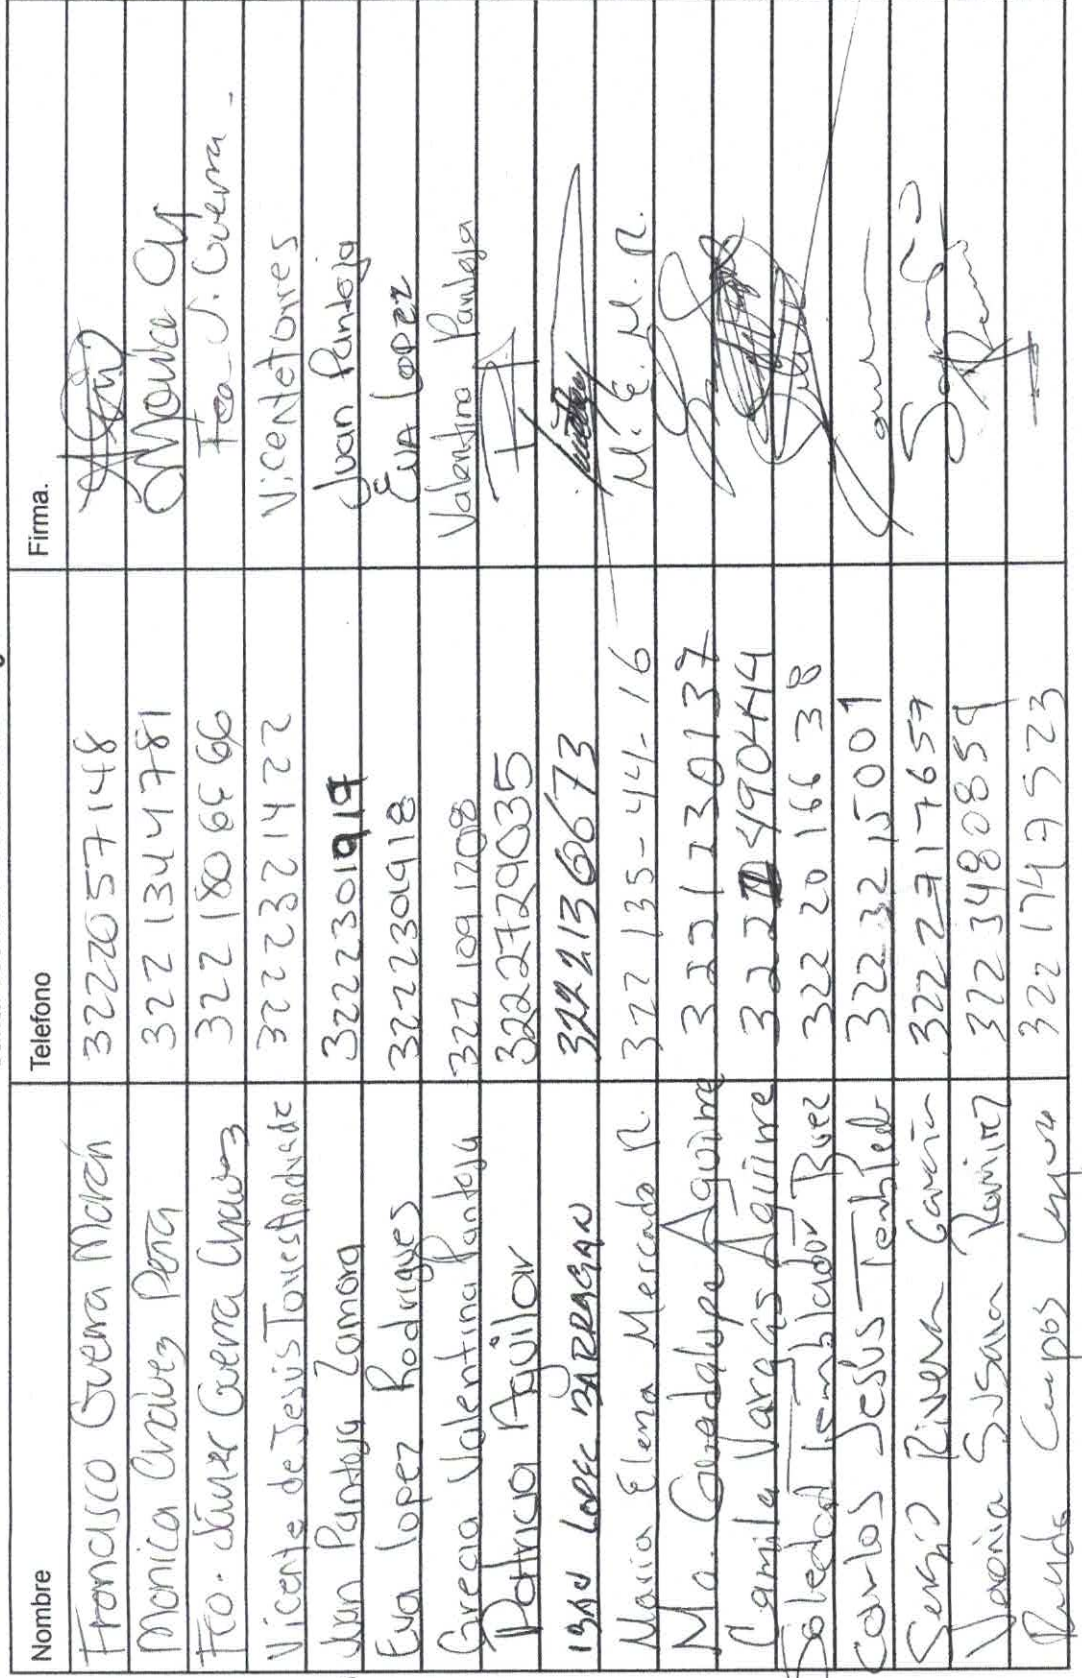 Nombre Telefono Firma.
Francisco Guerra Marín 3222057148
Monica Chavez Peña 322 1344781 Monica Ch
Fco. Javier Guerra Chavez 322 180 6866 Fco J. Guerra
Vicente de Jesús Torres Andrade 3222321422 Vicente torres
Juan Pantoja Zamora 3222301919 Juan Pantoja
Eva lopez Rodrigues 3222301918 Eva Lopez
Grecia Valentina Pantoja 322 109 1208 Valentina Pantoja
Patricia Aguilar 3222729035
IBAN LOPEC BARRAGAN 3222136673
Maria Elena Mercado R. 322 135-44-16 M. E. M. R.
Ma. Guadalupe Aguirre 3221230137
Camila Vargas Aguirre 322 490444
Soledad Temblador Baez 322 20 166 38
Carlos Jesus 322 32 15001
Sergio Rivera Garcia 322 2717657
Veronica Susana Ramirez 322 3480859
322 1747523